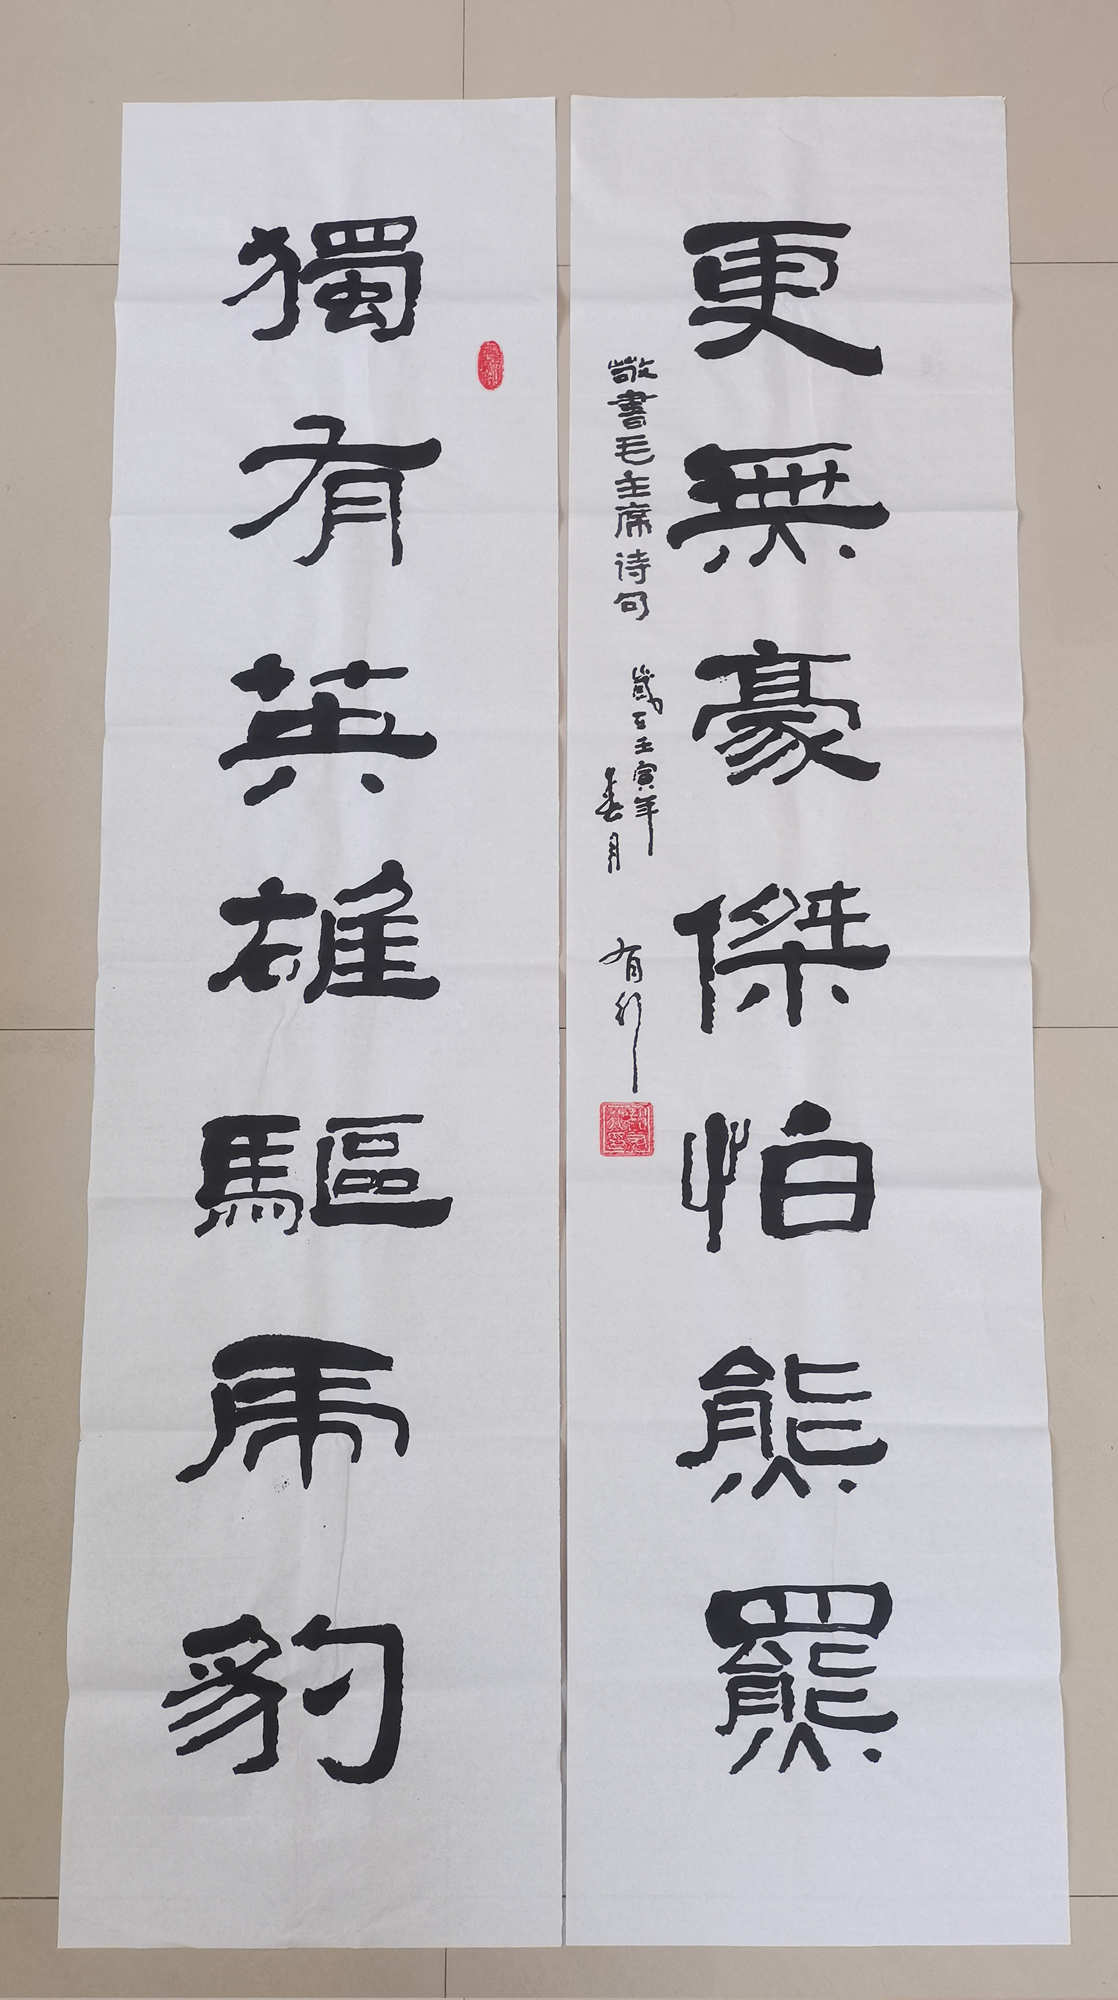 獨有英雄驅虎豹
更無豪傑怕熊羆
敬書毛主席诗句
歲在壬寅年
春月
有